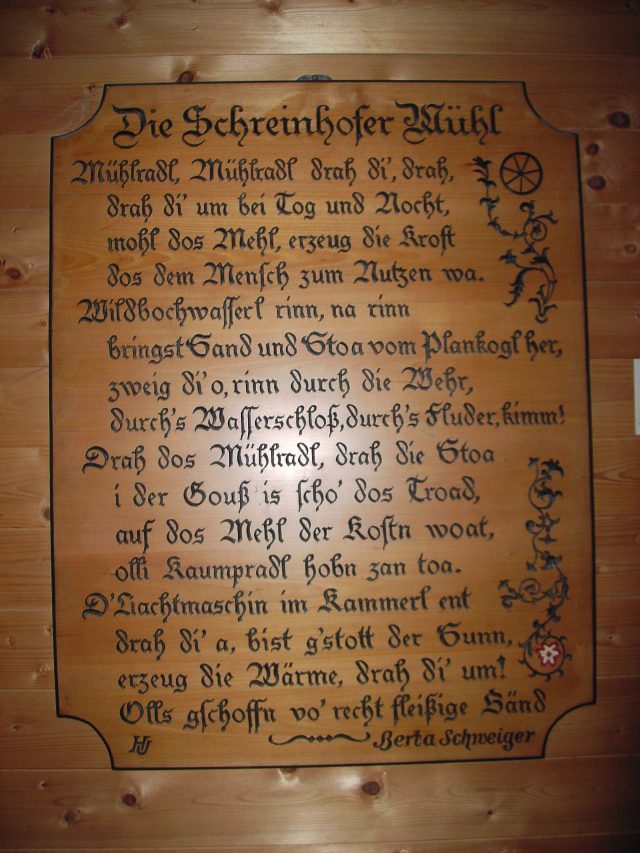 Die Schreinhofer Mühl
Mühlradl, Mühlradl drah di', drah,
drah di' um bei Tog und Nocht,
mohl dos Mehl, erzeug die Kroft
dos dem Mensch zum Nutzen wa.
Wildbochwasserl rinn, na rinn
bringst Sand und Stoa vom Plankogl her,
zweig di' o, rinn durch die Wehr,
durch's Wasserschloß, durch's Fluder, kimm!
Drah dos Mühlradl, drah die Stoa
i der Gouß is scho' dos Troad,
auf dos Mehl der Kostn woat,
olli Kaumpradl hobn zan toa.
D'Liachtmaschin im Kammerl ent
drah di' a, bist g'stott der Sunn,
erzeug die Wärme, drah di' um!
Olls gschoffn vo' recht fleißige Händ
HJ Berta Schweiger